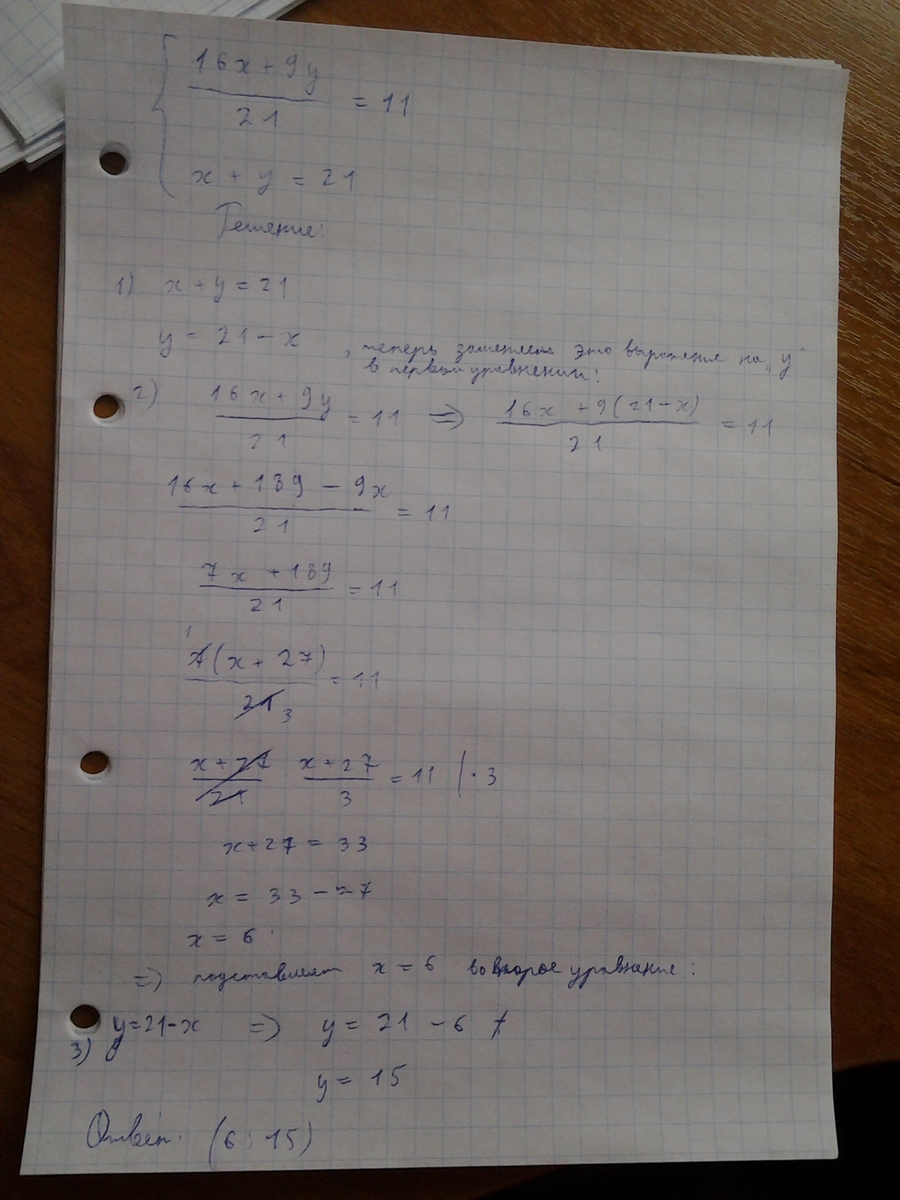 16x + 9y
21
= 11
x + y = 21
Решение:
1) x + y = 21
y = 21 - x , теперь заменяем это выражение на "y"
в первом уравнении:
2) 16x + 9y
21
= 11 => 16x + 9(21-x)
21
= 11
16x + 189 - 9x
21
= 11
7x + 189
21
= 11
1
7(x + 27)
21 3
= 11
x + 27
21
x + 27
3
= 11 | · 3
x + 27 = 33
x = 33 - 27
x = 6
=> подставляем x = 6 во второе уравнение:
3) y = 21 - x => y = 21 - 6
y = 15
Ответ: (6 ; 15)